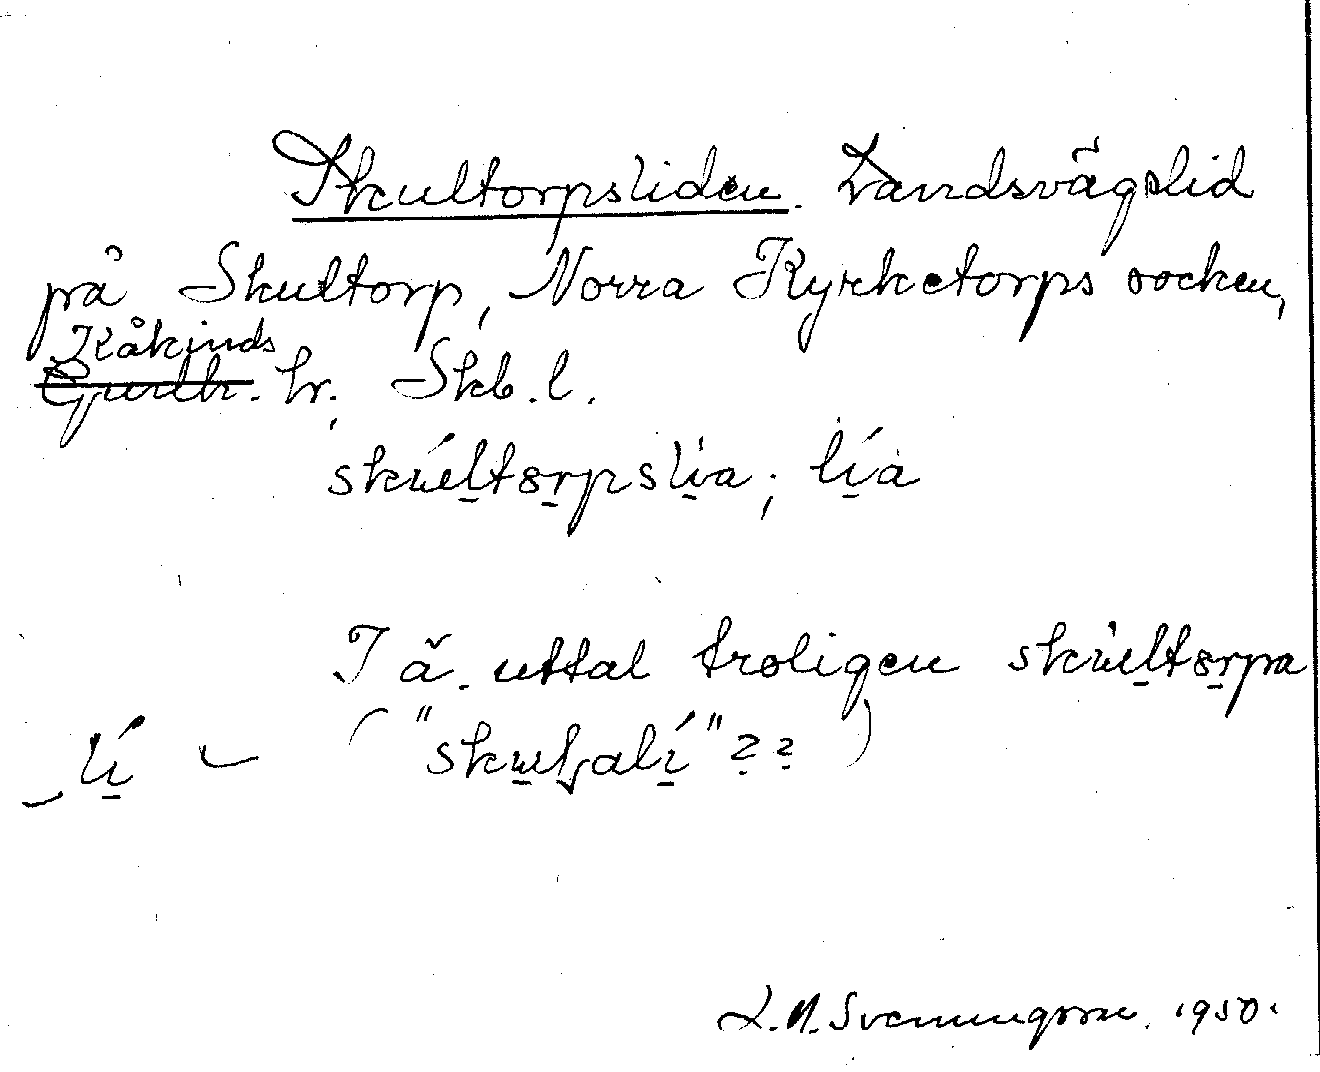 Skultorpsliden. Landsvägslid
på Skultorp, Norra Kyrketorps socken,
Kåkinds
Gudh. hr. Skb. l.
skúltørpslìa; lía
I ä. uttal troligen skùltørpa
lí – ("skuʈalí"??)
L. A. Svenungsson. 1950.